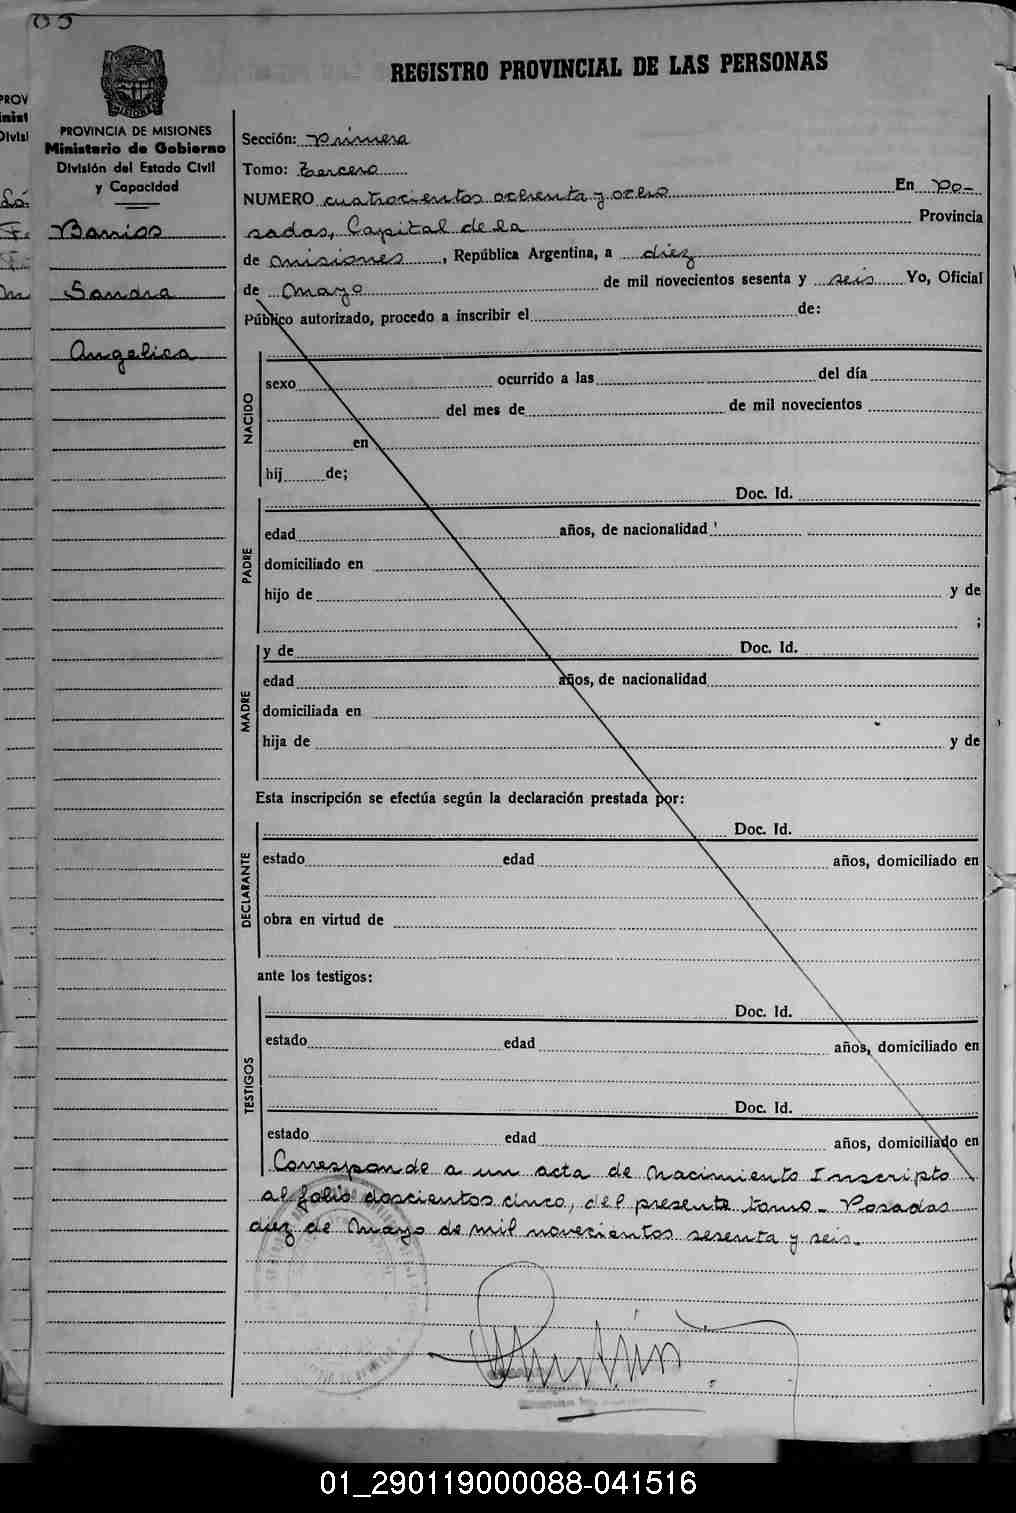 REGISTRO PROVINCIAL DE LAS PERSONAS
PROVINCIA DE MISIONES
Ministerio de Gobierno
División del Estado Civil
y Capacidad
Barrios
Sandra
Angelica
Sección: Primera
Tomo: tercero
NUMERO cuatrocientos ochenta y ocho En Po-
sadas, Capital de la Provincia
de Misiones, República Argentina, a diez
de Mayo de mil novecientos sesenta y seis Yo, Oficial
Público autorizado, procedo a inscribir el de:
NACIDO
sexo ocurrido a las del día
del mes de de mil novecientos
en
hij de;
PADRE
Doc. Id.
edad años, de nacionalidad
domiciliado en
hijo de y de
;
MADRE
y de Doc. Id.
edad años, de nacionalidad
domiciliada en
hija de y de
Esta inscripción se efectúa según la declaración prestada por:
DECLARANTE
Doc. Id.
estado edad años, domiciliado en
obra en virtud de
ante los testigos:
TESTIGOS
Doc. Id.
estado edad años, domiciliado en
Doc. Id.
estado edad años, domiciliado en
Corresponde a un acta de Nacimiento Inscripto
al folio doscientos cinco, del presente tomo. Posadas
diez de Mayo de mil novecientos sesenta y seis.
01_290119000088-041516